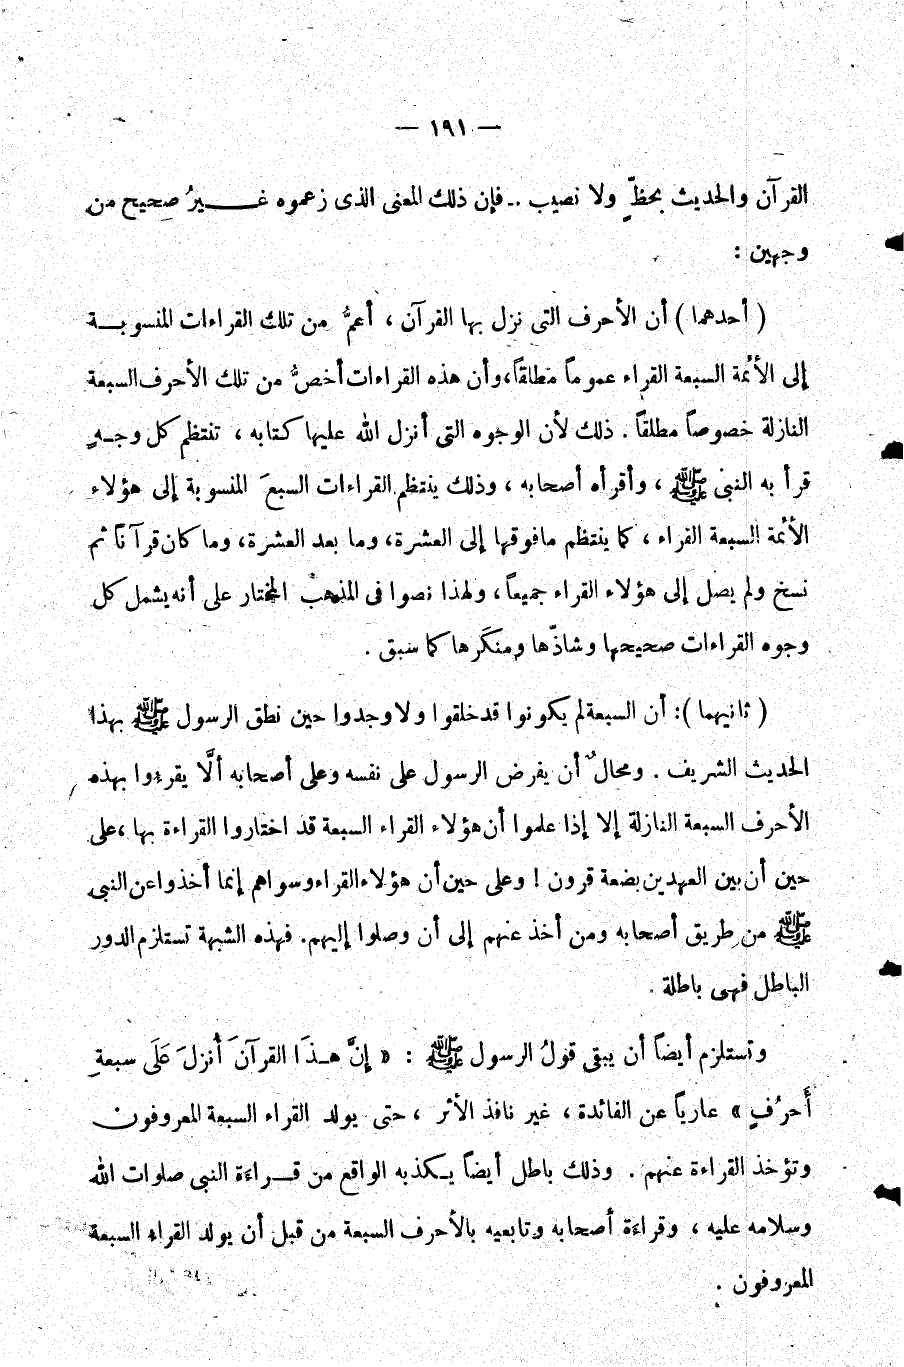 — ١٩١ —
القرآن والحديث بحظّ ولا نصيب .. فإن ذلك المعنى الذى زعموه غيرُ صحيح من
وجهين :
( أحدهما ) أن الأحرف التى نزل بها القرآن ، أعمُّ من تلك القراءات المنسوبة
إلى الأئمة السبعة القراء عموماً مطلقاً ، وأن هذه القراءات أخصُّ من تلك الأحرف السبعة
النازلة خصوصاً مطلقاً . ذلك لأن الوجوه التى أنزل الله عليها كتابه ، تنتظم كل وجهٍ
قرأ به النبى ﷺ ، وأقرأه أصحابه ، وذلك ينتظم القراءات السبعَ المنسوبة إلى هؤلاء
الأئمة السبعة القراء ، كما ينتظم مافوقها إلى العشرة ، وما بعد العشرة ، وما كان قرآناً ثم
نسخ ولم يصل إلى هؤلاء القراء جميعاً ، ولهذا نصوا فى المذهب المختار على أنه يشمل كل
وجوه القراءات صحيحها وشاذّها ومنكَرها كما سبق .
( ثانيهما ) : أن السبعة لم يكونوا قد خلقوا ولا وجدوا حين نطق الرسول ﷺ بهذا
الحديث الشريف . ومحالٌ أن يفرض الرسول على نفسه وعلى أصحابه ألَّا يقرءوا بهذه
الأحرف السبعة النازلة إلا إذا علموا أن هؤلاء القراء السبعة قد اختاروا القراءة بها ، على
حين أن بين العهدين بضعة قرون ! وعلى حين أن هؤلاء القراء وسواهم إنما أخذوا عن النبى
ﷺ من طريق أصحابه ومن أخذ عنهم إلى أن وصلوا إليهم . فهذه الشبهة تستلزم الدور
الباطل فهى باطلة .
وتستلزم أيضاً أن يبقى قولُ الرسول ﷺ : « إِنَّ هذَا القرآنَ أُنزلَ عَلَى سبعةِ
أَحرُفٍ » عارياً عن الفائدة ، غير نافذ الأثر ، حتى يولد القراء السبعة المعروفون
وتؤخذ القراءة عنهم . وذلك باطل أيضاً يكذبه الواقع من قراءة النبى صلوات الله
وسلامه عليه ، وقراءة أصحابه وتابعيه بالأحرف السبعة من قبل أن يولد القراء السبعة
المعروفون .